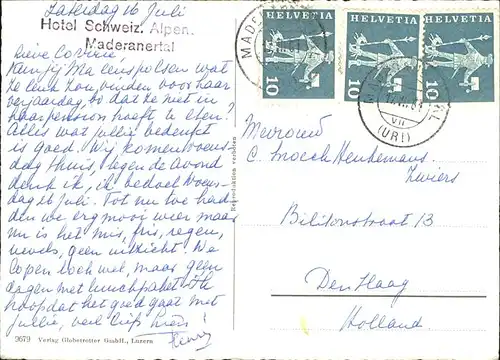 Zaterdag 16 Juli
Hotel Schweiz. Alpen.
Maderanertal
Lieve Corrie,
Kun jij Ma eens polsen wat
ze leuk zou vinden voor haar
verjaardag, bv dat ze niet in
haar pension hoeft te eten?
Alles wat jullie bedenkt
is goed. Wij komen Woens
dag thuis, tegen de avond
denk ik, ik bedoel Woens-
dag 16 Juli. Tot nu toe had
den we erg mooi weer maar
nu is het mis, fris, regen,
nevels, geen uitzicht. We
lopen toch wel, maar geen
dagen met lunchpaket. Ik
hoop dat het goed gaat met
jullie, veel liefs hoor!
9679 Verlag Globetrotter GmbH., Luzern
Reproduktion verboten
HELVETIA
HELVETIA
HELVETIA
10
10
10
(URI)
Mevrouw
C. Heukemans.
Bilitonstraat 13
Den Haag
Holland